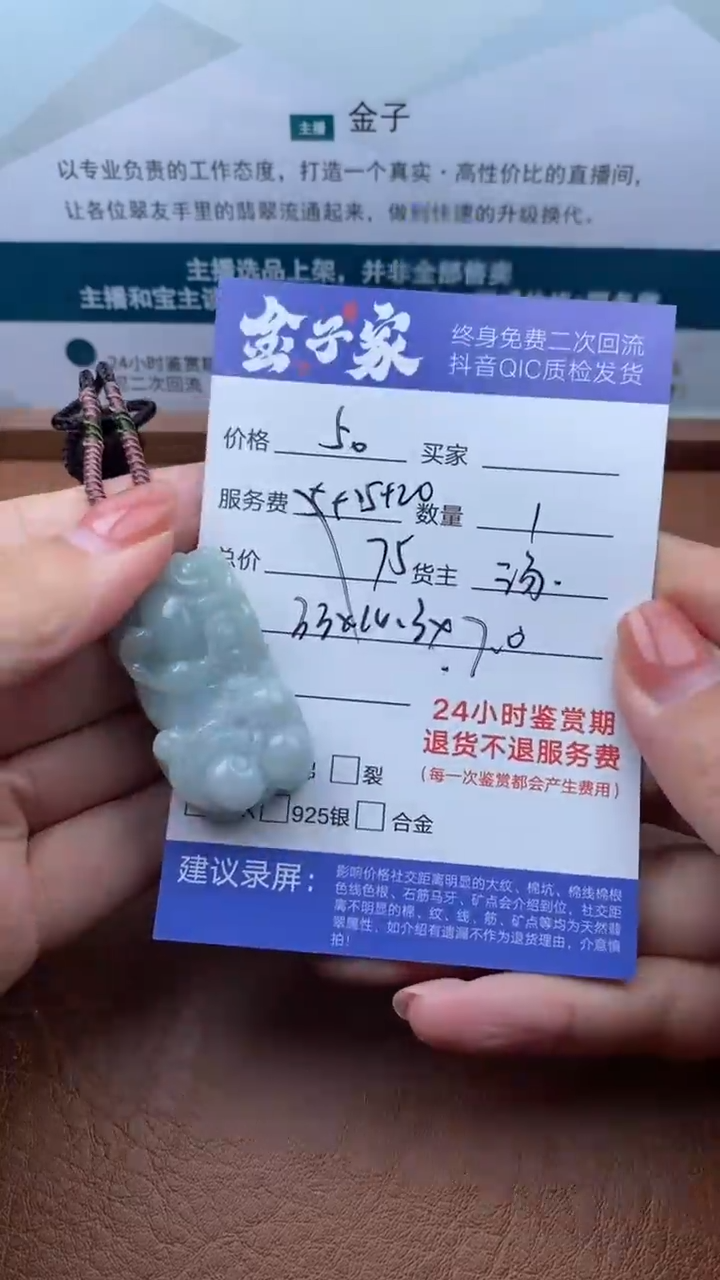 主播 金子
以专业负责的工作态度，打造一个真实·高性价比的直播间，
让各位翠友手里的翡翠流通起来，做到快速的升级换代。
主播选品上架，并非全部售卖
主播和宝主
24小时鉴赏期
二次回流
金子家
终身免费二次回流
抖音QIC质检发货
价格 50 买家
服务费 +15+20 数量 1
总价 75 货主 汤.
33×14.3×7.0
24小时鉴赏期
退货不退服务费
(每一次鉴赏都会产生费用)
裂
925银 合金
建议录屏：
影响价格社交距离明显的大纹、棉坑、棉线棉根
色线色根、石筋马牙、矿点会介绍到位，社交距
离不明显的棉、纹、线、筋、矿点等均为天然翡
翠属性，如介绍有遗漏不作为退货理由，介意慎
拍！